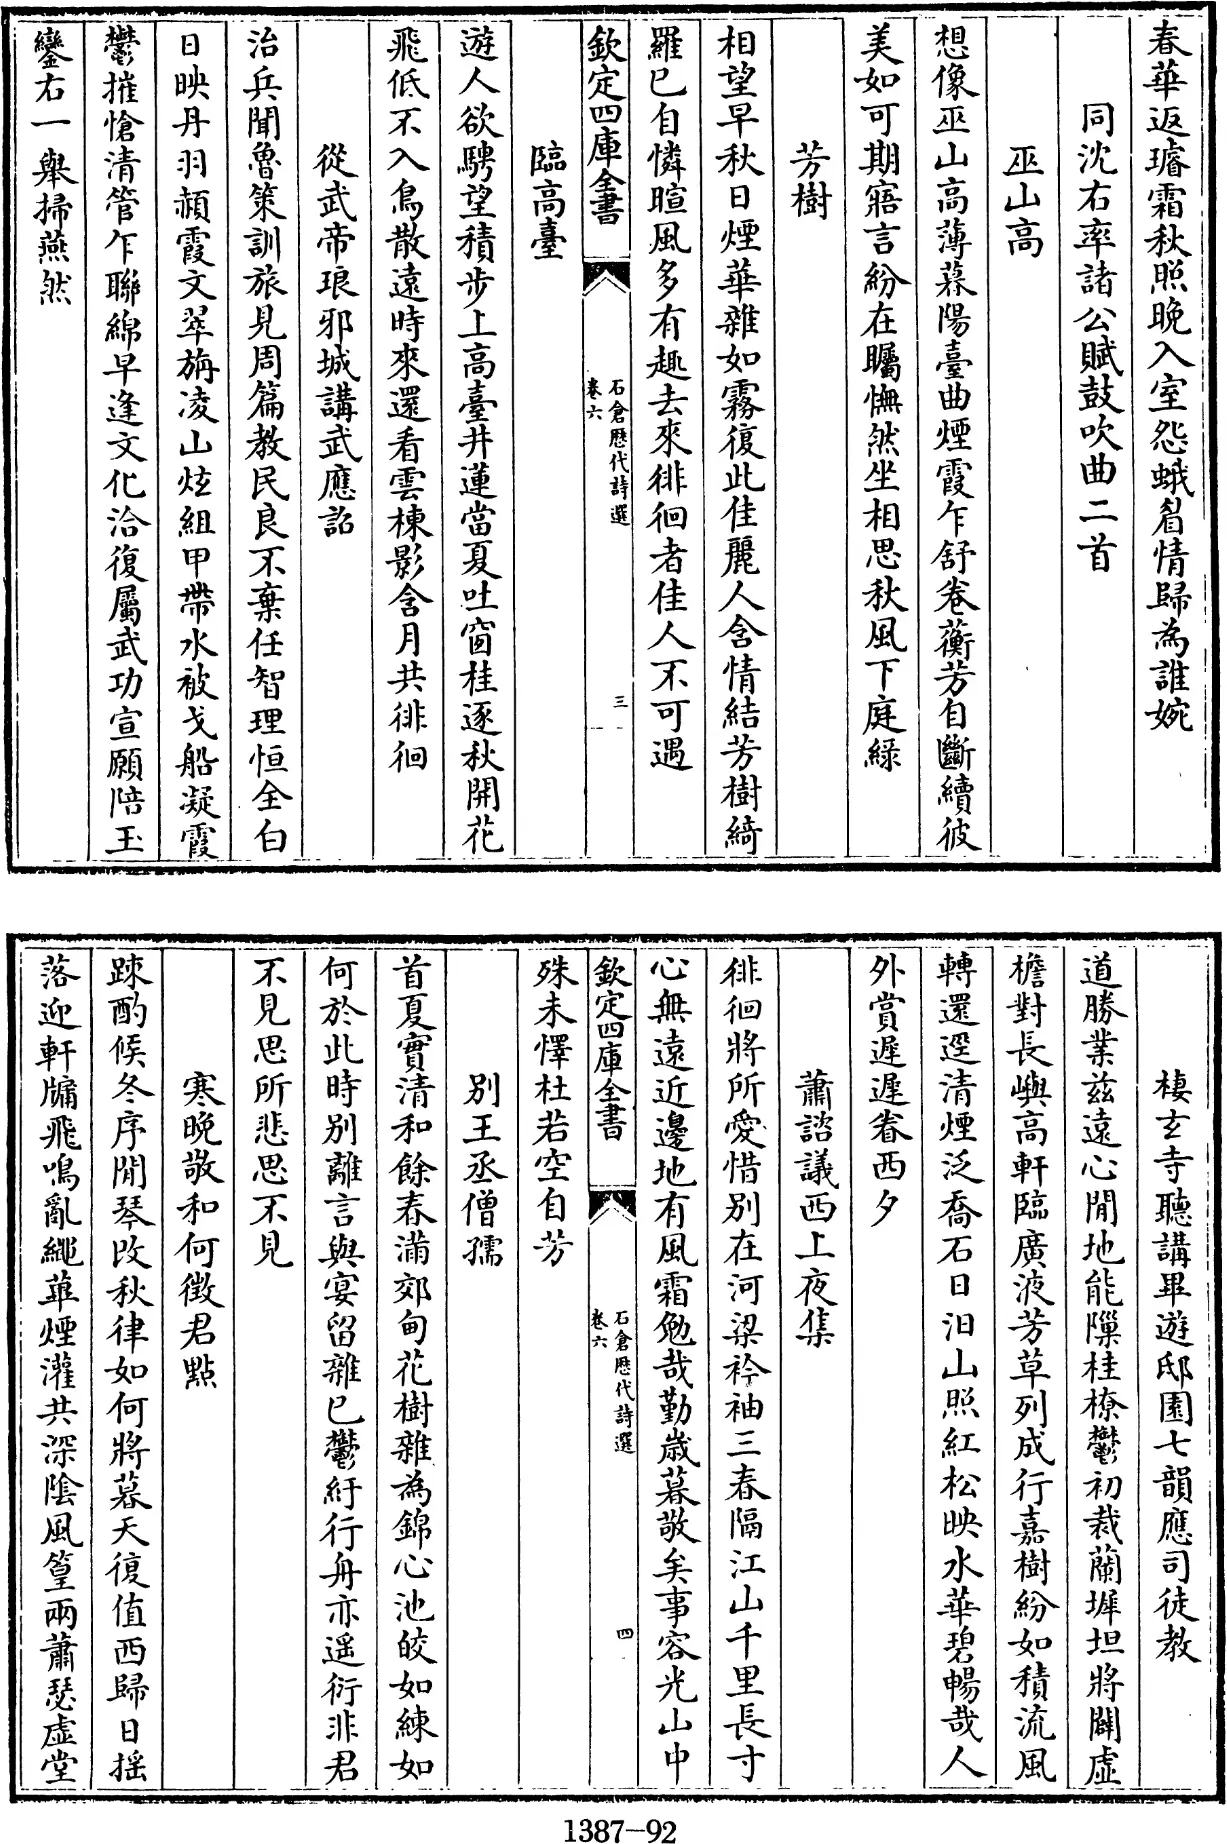 春華返璿霜秋照晚入室怨蛾眉情歸為誰婉
同沈右率諸公賦鼓吹曲二首
巫山高
想像巫山高薄暮陽臺曲煙霞乍舒卷蘅芳自斷續彼
美如可期寤言紛在矚憮然坐相思秋風下庭綠
芳樹
相望早秋日煙華雜如霧復此佳麗人含情結芳樹綺
羅已自憐暄風多有趣去來徘徊者佳人不可遇
欽定四庫全書
石倉歷代詩選
卷六
三
臨高臺
遊人欲騁望積步上高臺井蓮當夏吐窗桂逐秋開花
飛低不入鳥散遠時來還看雲棟影含月共徘徊
從武帝琅邪城講武應詔
治兵聞魯策訓旅見周篇教民良不棄任智理恒全白
日映丹羽頳霞文翠旃凌山炫組甲帶水被戈船凝霞
鬱摧愴清管乍聯綿早逢文化洽復屬武功宣願陪玉
鑾右一舉掃燕然
棲玄寺聽講畢遊邸園七韻應司徒教
道勝業茲遠心閒地能隟桂橑鬱初裁蘭墀坦將闢虛
檐對長嶼高軒臨廣液芳草列成行嘉樹紛如積流風
轉還逕清煙泛喬石日汨山照紅松映水華碧暢哉人
外賞遲遲眷西夕
蕭諮議西上夜集
徘徊將所愛惜別在河梁衿袖三春隔江山千里長寸
心無遠近邊地有風霜勉哉勤歲暮敬矣事容光山中
欽定四庫全書
石倉歷代詩選
卷六
四
殊未懌杜若空自芳
別王丞僧孺
首夏實清和餘春滿郊甸花樹雜為錦心池皎如練如
何於此時別離言與宴留雜已鬱紆行舟亦遥衍非君
不見思所悲思不見
寒晚敬和何徵君點
踈酌候冬序閒琴改秋律如何將暮天復值西歸日揺
落迎軒牖飛鳴亂繩蓽煙灌共深陰風篁兩蕭瑟虛堂
1387-92